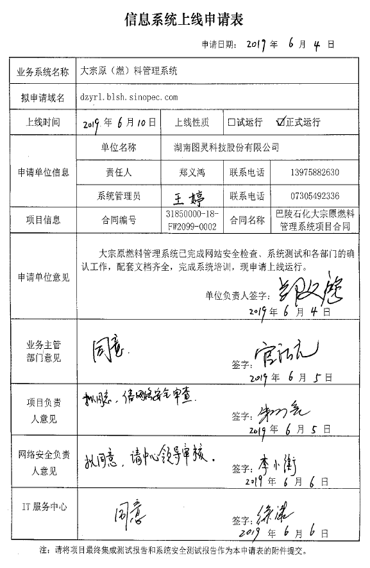 信息系统上线申请表
申请日期: 2019 年 6 月 4 日
业务系统名称 大宗原（燃）料管理系统
拟申请域名 dzyrl.blsh.sinopec.com
上线时间 2019 年 6 月 10 日 上线性质 □试运行 ☑正式运行
申请单位信息 单位名称 湖南图灵科技股份有限公司
责任人 郑义鸿 联系电话 13975882630
系统管理员 王婷 联系电话 07305492336
项目信息 合同编号 31850000-18-FW2099-0002 合同名称 巴陵石化大宗原燃料管理系统项目合同
申请单位意见
大宗原燃料管理系统已完成网站安全检查、系统测试和各部门的确
认工作，配套文档齐全，完成系统培训，现申请上线运行。
单位负责人签字:
2019 年 6 月 4 日
业务主管部门意见 同意.
签字:
2019 年 6 月 5 日
项目负责人意见 拟同意，信网络安全审查
签字:
2019 年 6 月 5 日
网络安全负责人意见 拟同意，请中心领导审核。
签字: 李小街
2019 年 6 月 6 日
IT 服务中心 同意
签字:
2019 年 6 月 6 日
注: 请将项目最终集成测试报告和系统安全测试报告作为本申请表的附件提交。